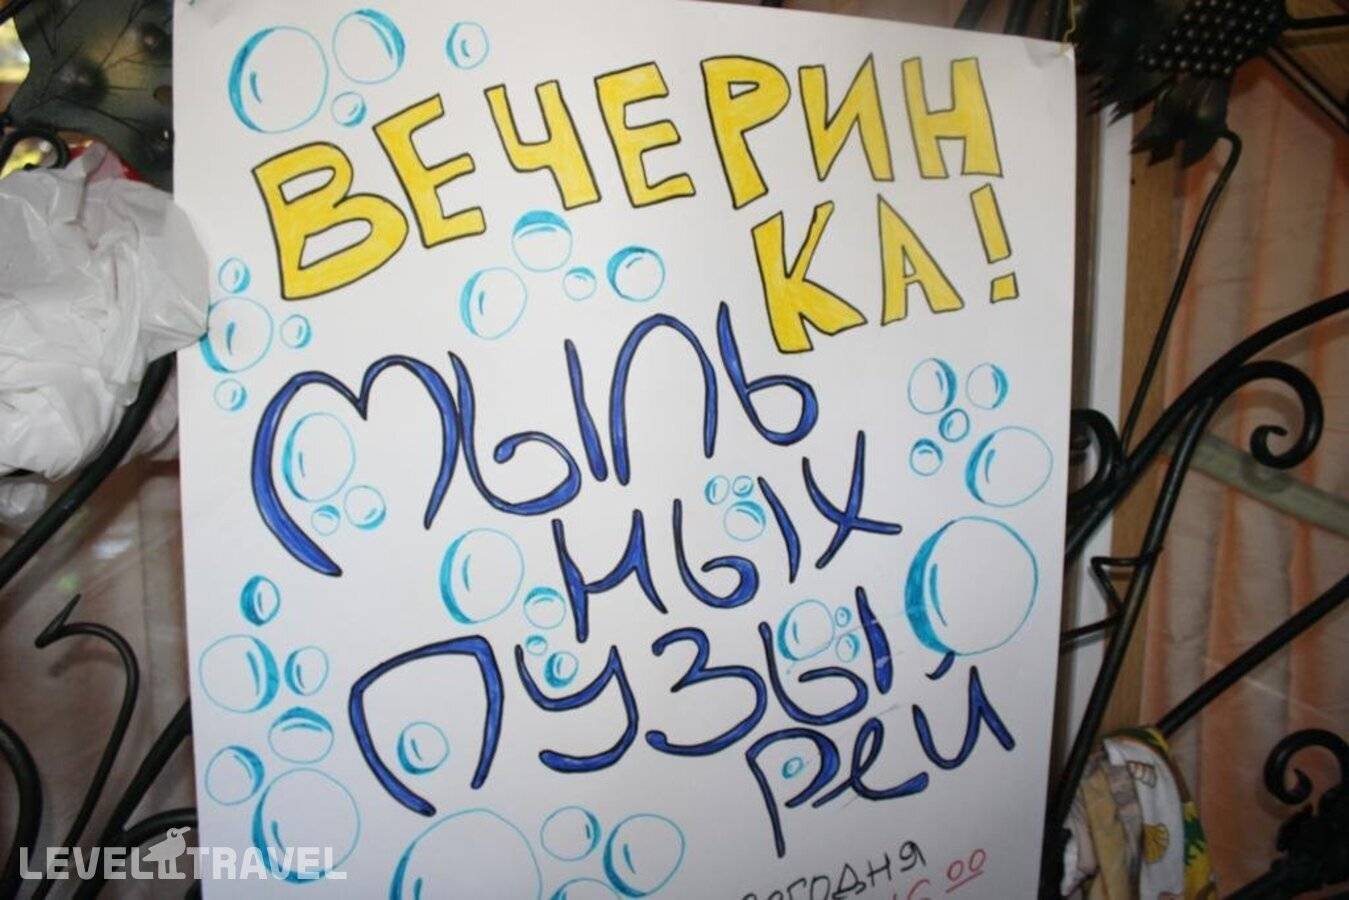 ВЕЧЕРИН
КА!
МЫЛЬ
НЫХ
ПУЗЫ
РЕЙ
СЕГОДНЯ
16 00
LEVEL TRAVEL